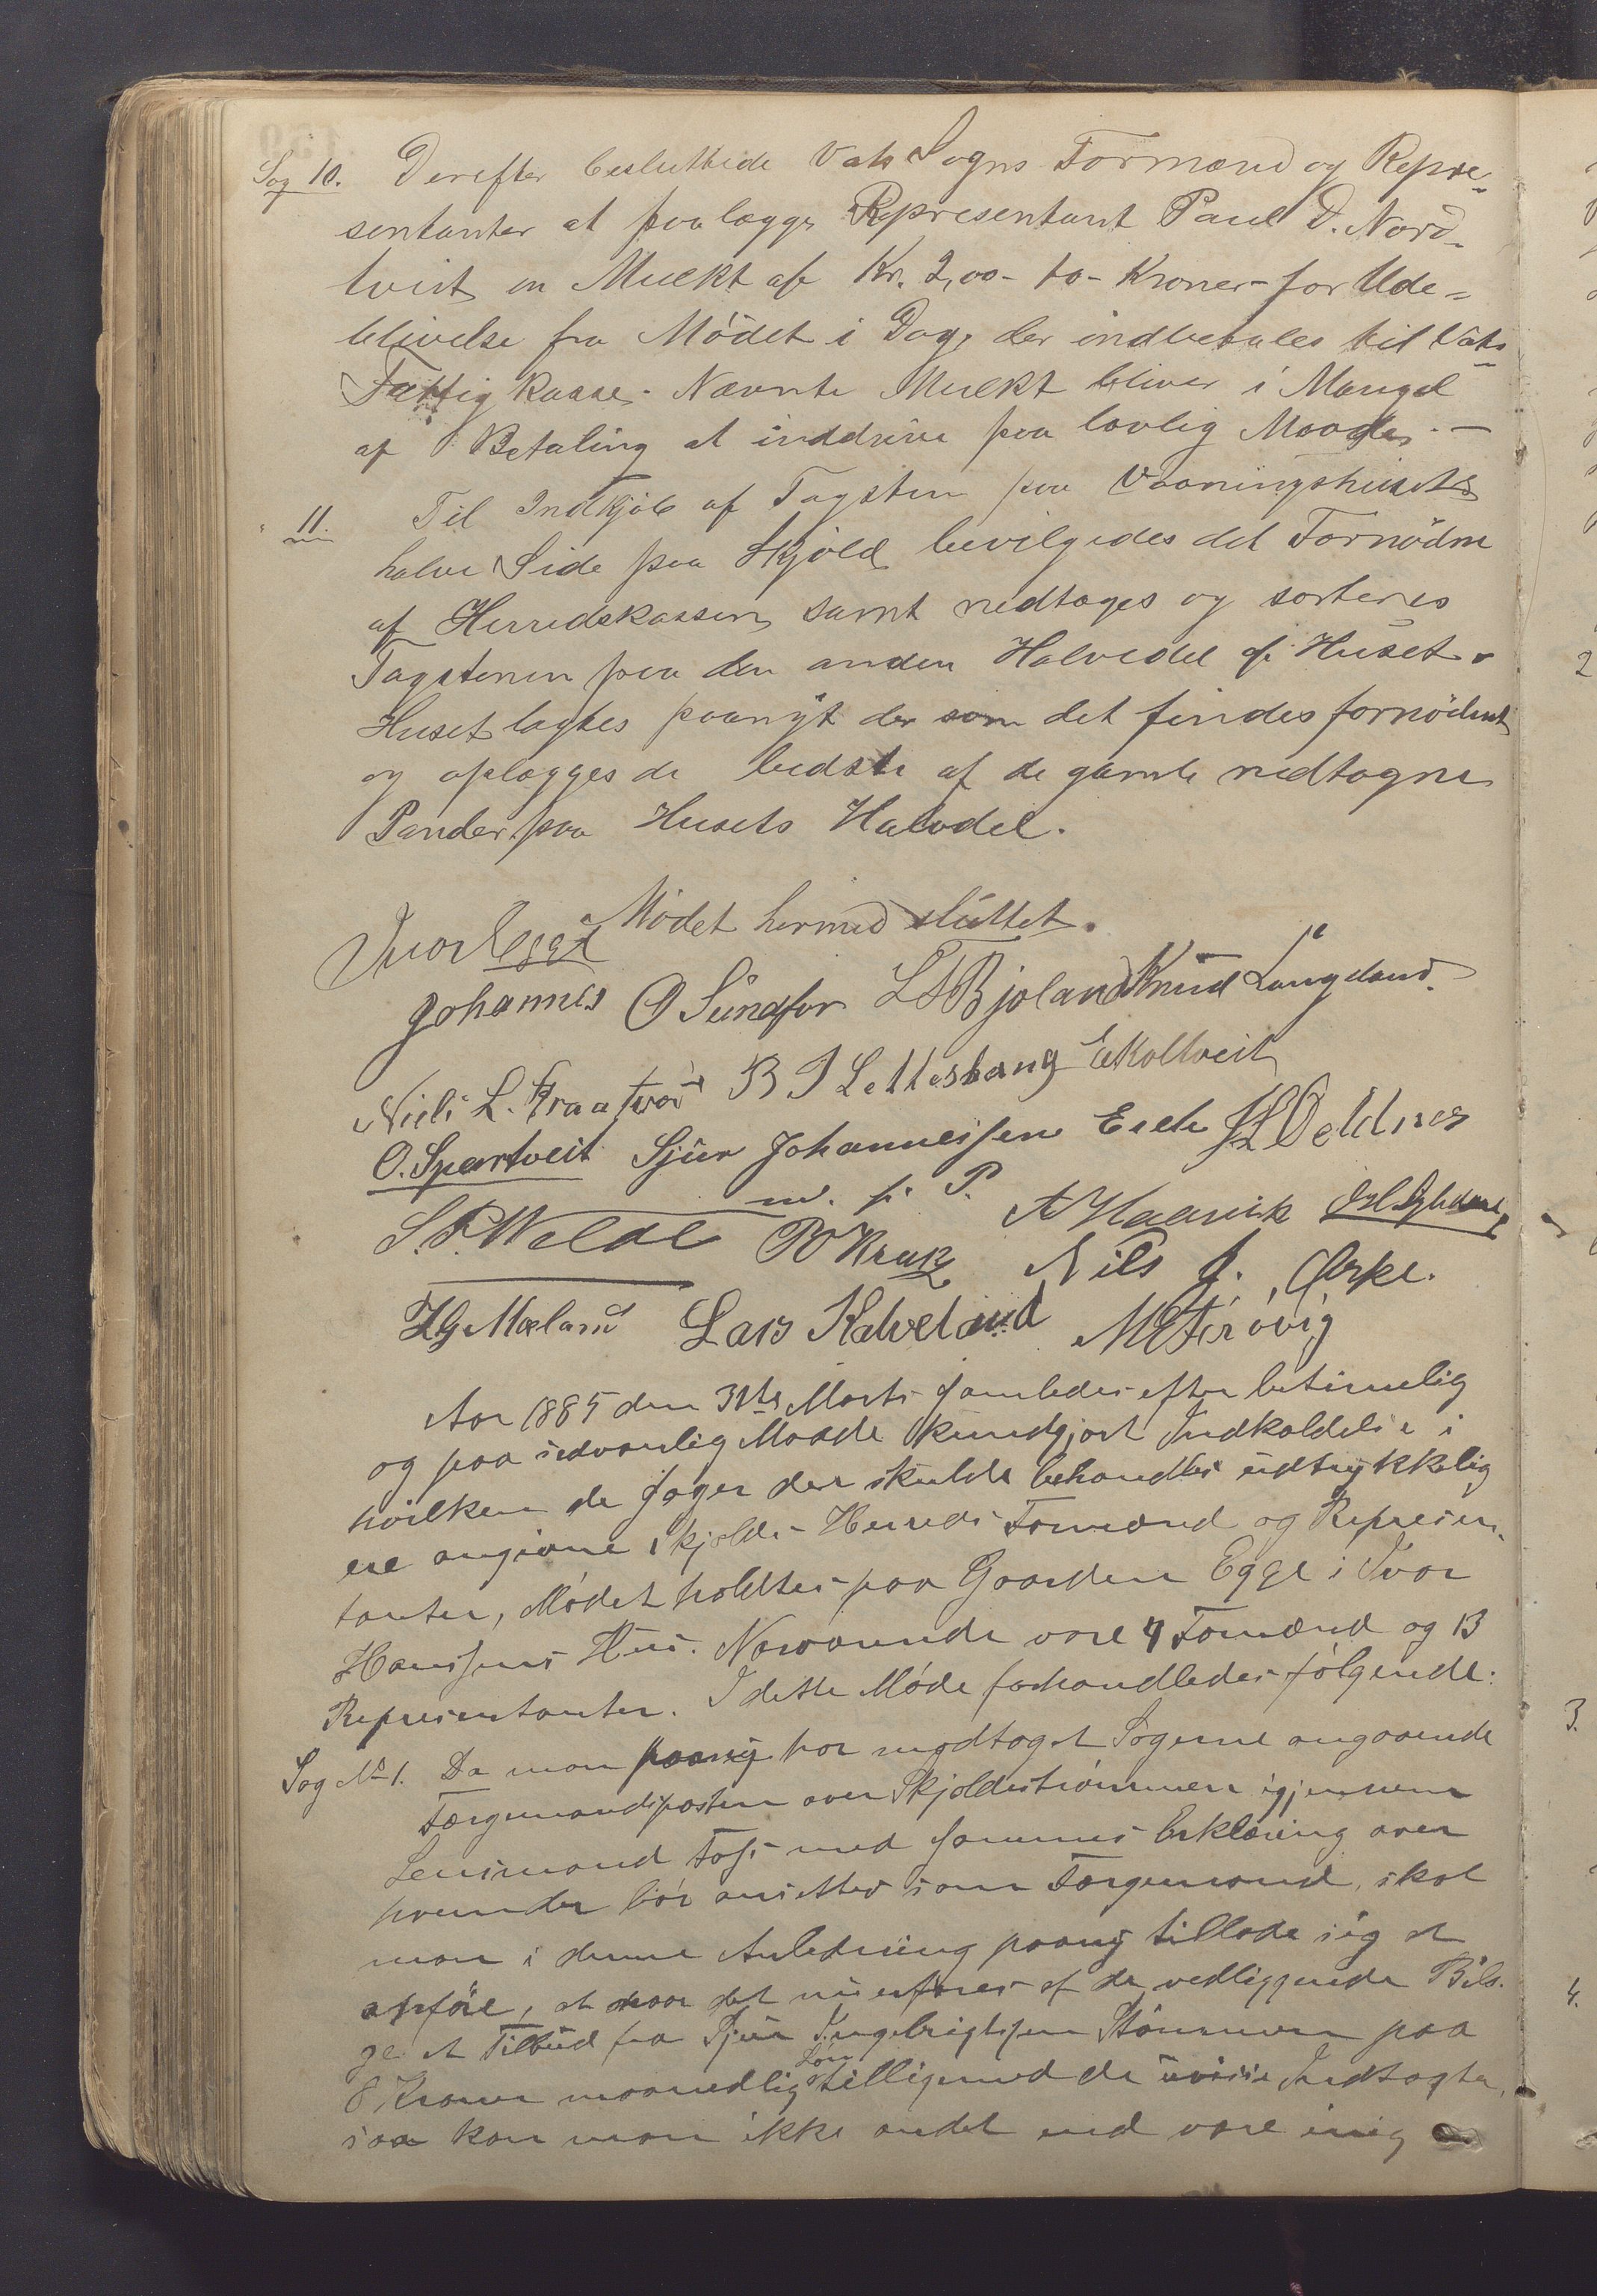 Sag 10. Derefter besluttede Vats Sogns Formænd og Repræ-
sentanter at paalægge Representant Paul D. Nord-
tveit en Mulkt af Kr. 2,00 - to - Kroner - for Ude-
blivelse fra Mödet i Dag, der indbetales til Vats
Fattigkasse. Nævnte Mulkt bliver i Mangel
af Betaling at inddrive paa lovlig Maade. -
" 11. Til Indkjöb af Tagsten paa Vaaningshusets
halve Side paa Skjold bevilgedes det Fornödne
af Herredskassen, samt nedtages og sorteres
Tagstenen paa den anden Halvedel af Huset.
Huset lagtes paanyt der som det findes fornödent
og oplægges de bedste af de gamle nedtagne
Pander paa Husets Halvdel.
Mödet hermed sluttet.
Ivar Egge
Johannes O Sundfor L T Bjoland Knud Langeland
Niels L. Kraa B J Lettesbang Eikeltveit
O. Spartveit Sjur Johannessen Erete
m. f. P.
S. P. Welde P O Krak A Haavik
Nils J. Örke.
H G Mæland Lars Kalveland
Aar 1885 den 31te Marts samledes efter betimelig
og paa sedvanlig Maade kundgjort Indkaldelse i
hvilken de Sager der skulde behandles udtrykkelig
ere angivne, Skjolds Herreds Formænd og Represen-
tanter, Mödet holdtes paa Gaarden Egge i Ivar
Hansens Hus. Nærværende vare 4 Formænd og 13
Representanter. I dette Möde forhandledes fölgende:
Sag No 1. Da man paany har modtaget Sagerne angaaende
Færgemandsposten over Skjoldestrømmen igjennem
Lensmand Foss med sammes Erklæring over
hvem der bör ansættes som Færgemand, skal
man i denne Anledning paany tillade sig at
anföre, at naar det nu erfares af de vedliggende Bila-
ge et Tilbud fra Sjur Ingebrigtsen Strömmen paa
8 Kroner maanedlig Lön tilligemed de uvisse Indtægter,
saa kan man ikke andet end være enig